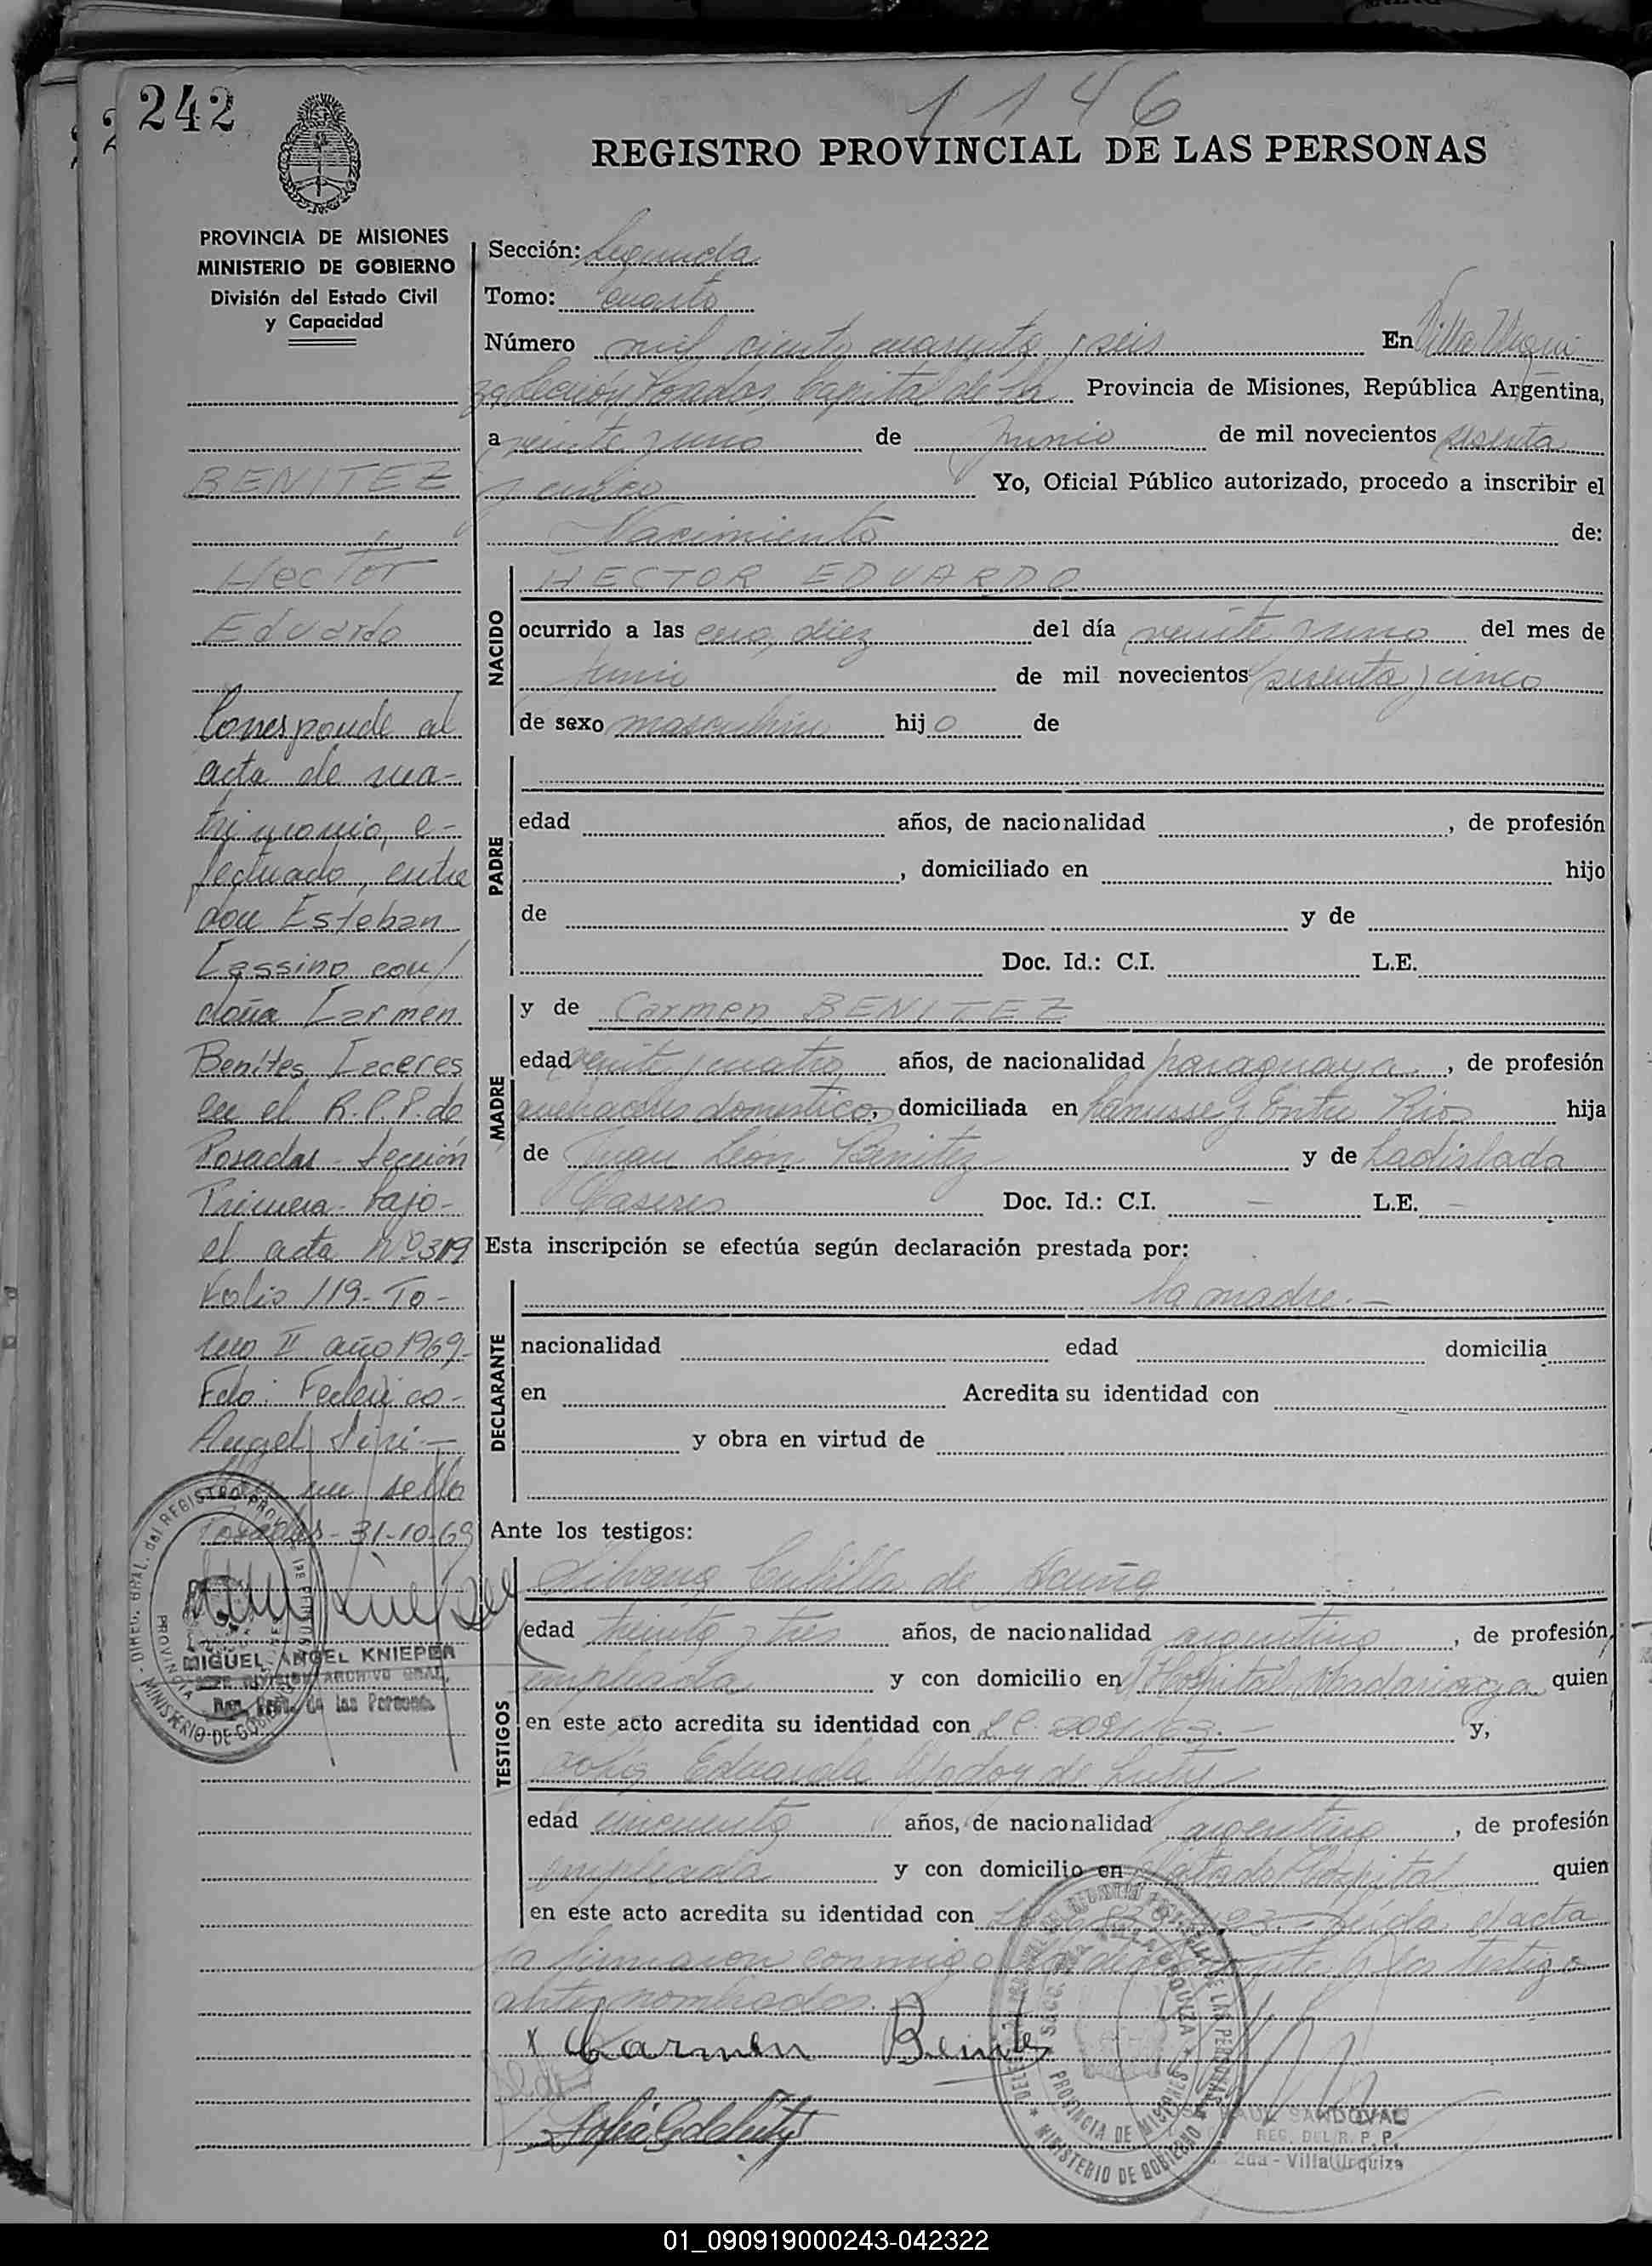 242
1146
REGISTRO PROVINCIAL DE LAS PERSONAS
PROVINCIA DE MISIONES
MINISTERIO DE GOBIERNO
División del Estado Civil
y Capacidad
BENITEZ
Hector
Eduardo
Corresponde al
acta de ma-
trimonio, e-
fectuado, entre
don Esteban
Cassino con
doña Carmen
Benítes Caceres
en el R.P.P. de
Posadas - Sección
Primera - bajo -
el acta Nº 319
Folio 119 - To-
mo II año 1969 -
Fdo: Federico -
Angel
un sello
Posadas - 31-10-69
MIGUEL ANGEL KNIEPER
JEFE DIVISION ARCHIVO GRAL.
Reg. Prov. de las Personas
Sección: Segunda
Tomo: Cuarto
Número mil ciento cuarenta y seis En Villa Urqui
za Sección Posadas, Capital de la Provincia de Misiones, República Argentina,
a veinte y uno de junio de mil novecientos sesenta
y cinco Yo, Oficial Público autorizado, procedo a inscribir el
Nacimiento de:
NACIDO
HECTOR EDUARDO
ocurrido a las cero, diez del día veinte y uno del mes de
junio de mil novecientos sesenta y cinco
de sexo masculino hijo de
PADRE
edad años, de nacionalidad , de profesión
, domiciliado en hijo
de y de
Doc. Id.: C.I. L.E.
MADRE
y de Carmen BENITEZ
edad veinte y cuatro años, de nacionalidad paraguaya, de profesión
quehaceres domestico, domiciliada en Lanusse y Entre Rios hija
de Juan León Benitez y de Ladislada
Caseres Doc. Id.: C.I. - L.E. -
Esta inscripción se efectúa según declaración prestada por:
DECLARANTE
la madre. -
nacionalidad edad domicilia
en Acredita su identidad con
y obra en virtud de
Ante los testigos:
TESTIGOS
Silvana Cubilla de Acuña
edad treinta y tres años, de nacionalidad argentina, de profesión
empleada y con domicilio en Hospital Madariaga quien
en este acto acredita su identidad con y,
Sofia Eduarda Godoy de
edad cincuenta años, de nacionalidad argentina, de profesión
empleada y con domicilio en citado Hospital quien
en este acto acredita su identidad con Leida el acta
la firmaron conmigo la declarante y los testigo
antes nombrados.
x Carmen Benite
RAUL SANDOVAL
REG. DEL R. P. P.
2da - Villa Urquiza
VILLA URQUIZA
PROVINCIA DE MISIONES
MINISTERIO DE GOBIERNO
01_090919000243-042322